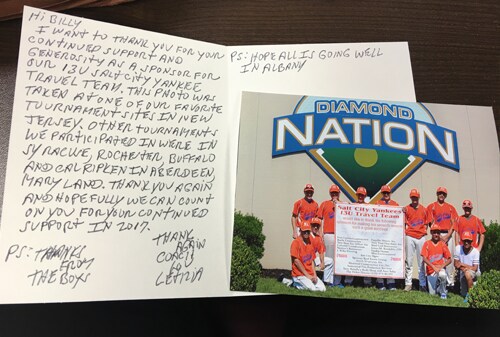 Hi BILLY
I WANT TO THANK YOU FOR YOUR
CONTINUED SUPPORT AND
GENEROSITY AS A SPONSOR FOR
OUR 13U SALT CITY YANKEE
TRAVEL TEAM. THIS PHOTO WAS
TAKEN AT ONE OF OUR FAVORITE
TOURNAMENT SITES IN NEW
JERSEY. OTHER TOURNAMENTS
WE PARTICIPATED IN WERE IN
SYRACUSE, ROCHESTER, BUFFALO
AND CAL RIPKEN IN ABERDEEN,
MARYLAND. THANK YOU AGAIN
AND HOPEFULLY WE CAN COUNT
ON YOU FOR YOUR CONTINUED
SUPPORT IN 2017.
THANK
AGAIN
COACH
LOU
LETIZIA
PS: THANKS
FROM
THE BOYS
PS: HOPE ALL IS GOING WELL
IN ALBANY
DIAMOND
NATION
Salt City Yankees
13U Travel Team